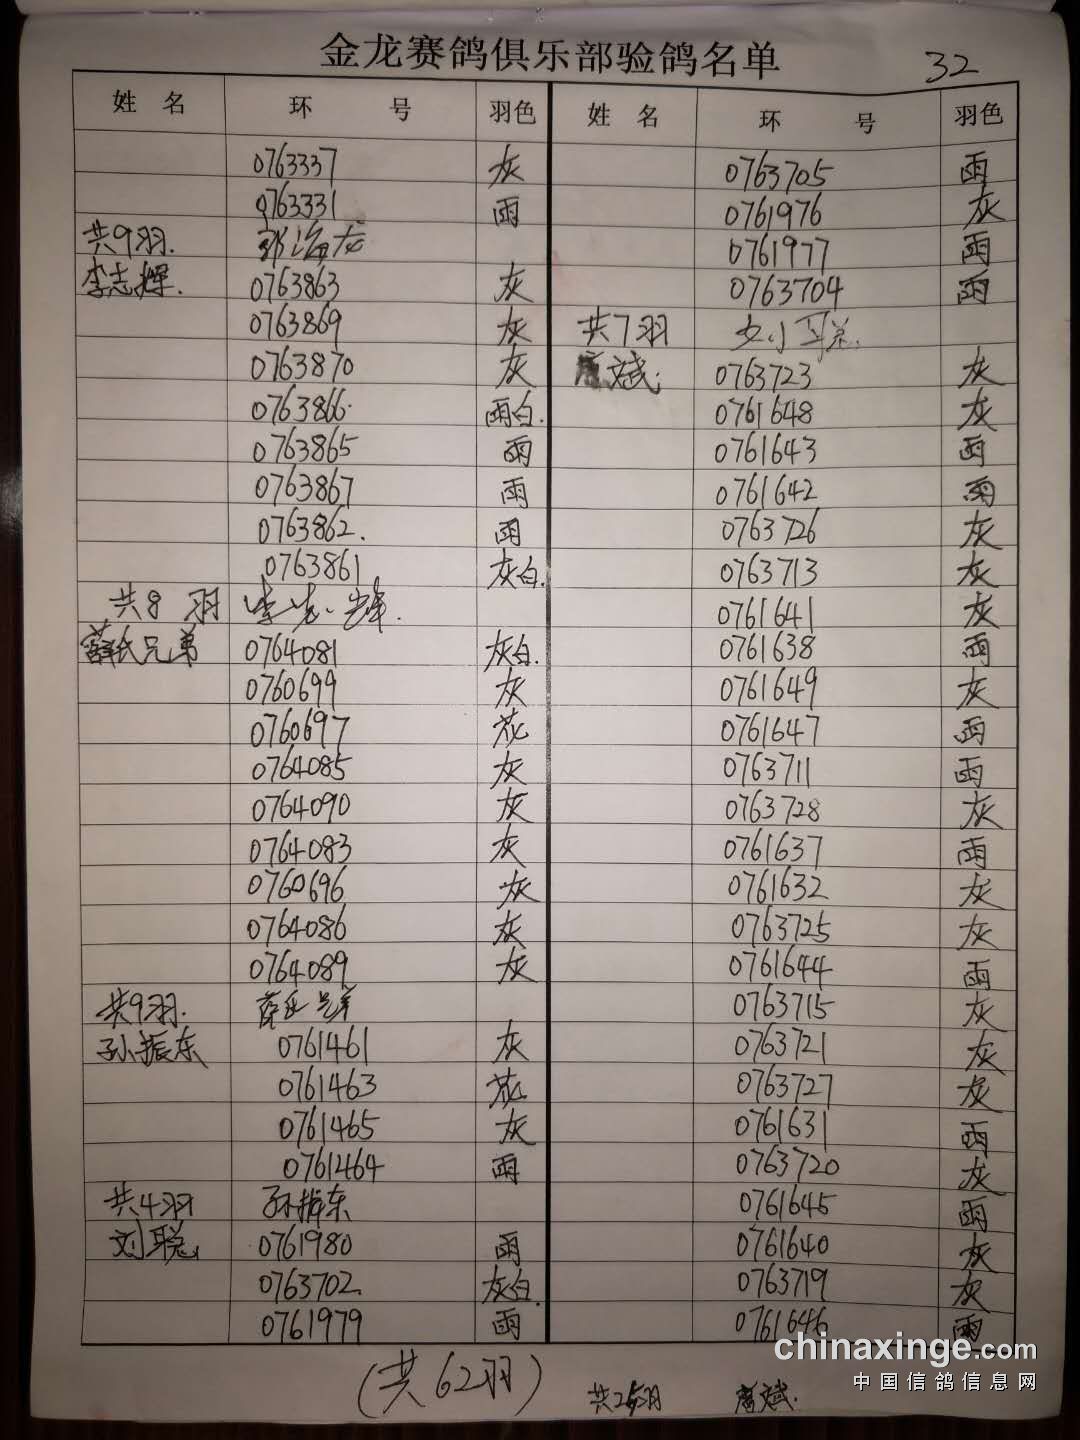 金龙赛鸽俱乐部验鸽名单
32
姓 名 环 号 羽色
0763337 灰
0763331 雨
共9羽. 郭海龙
李志辉. 0763863 灰
0763869 灰
0763870 灰
0763866 雨白.
0763865 雨
0763867 雨
0763862. 雨
0763861 灰白.
共8羽 李志辉.
薛氏兄弟 0764081 灰白.
0760699 灰
0760697 花
0764085 灰
0764090 灰
0764083 灰
0760696 灰
0764086 灰
0764089 灰
共9羽. 薛氏兄弟
孙振东 0761461 灰
0761463 花
0761465 灰
0761464 雨
共4羽 孙振东
刘聪 0761980 雨
0763702 灰白.
0761979 雨
姓 名 环 号 羽色
0763705 雨
0761976 灰
0761977 雨
0763704 雨
共7羽
斌. 0763723 灰
0761648 灰
0761643 雨
0761642 雨
0763726 灰
0763713 灰
0761641 灰
0761638 雨
0761649 灰
0761647 雨
0763711 雨
0763728 灰
0761637 雨
0761632 灰
0763725 灰
0761644 雨
0763715 灰
0763721 灰
0763727 灰
0761631 雨
0763720 灰
0761645 雨
0761640 灰
0763719 灰
0761646 雨
(共62羽)
共25羽 斌.
chinaxinge.com
中国信鸽信息网